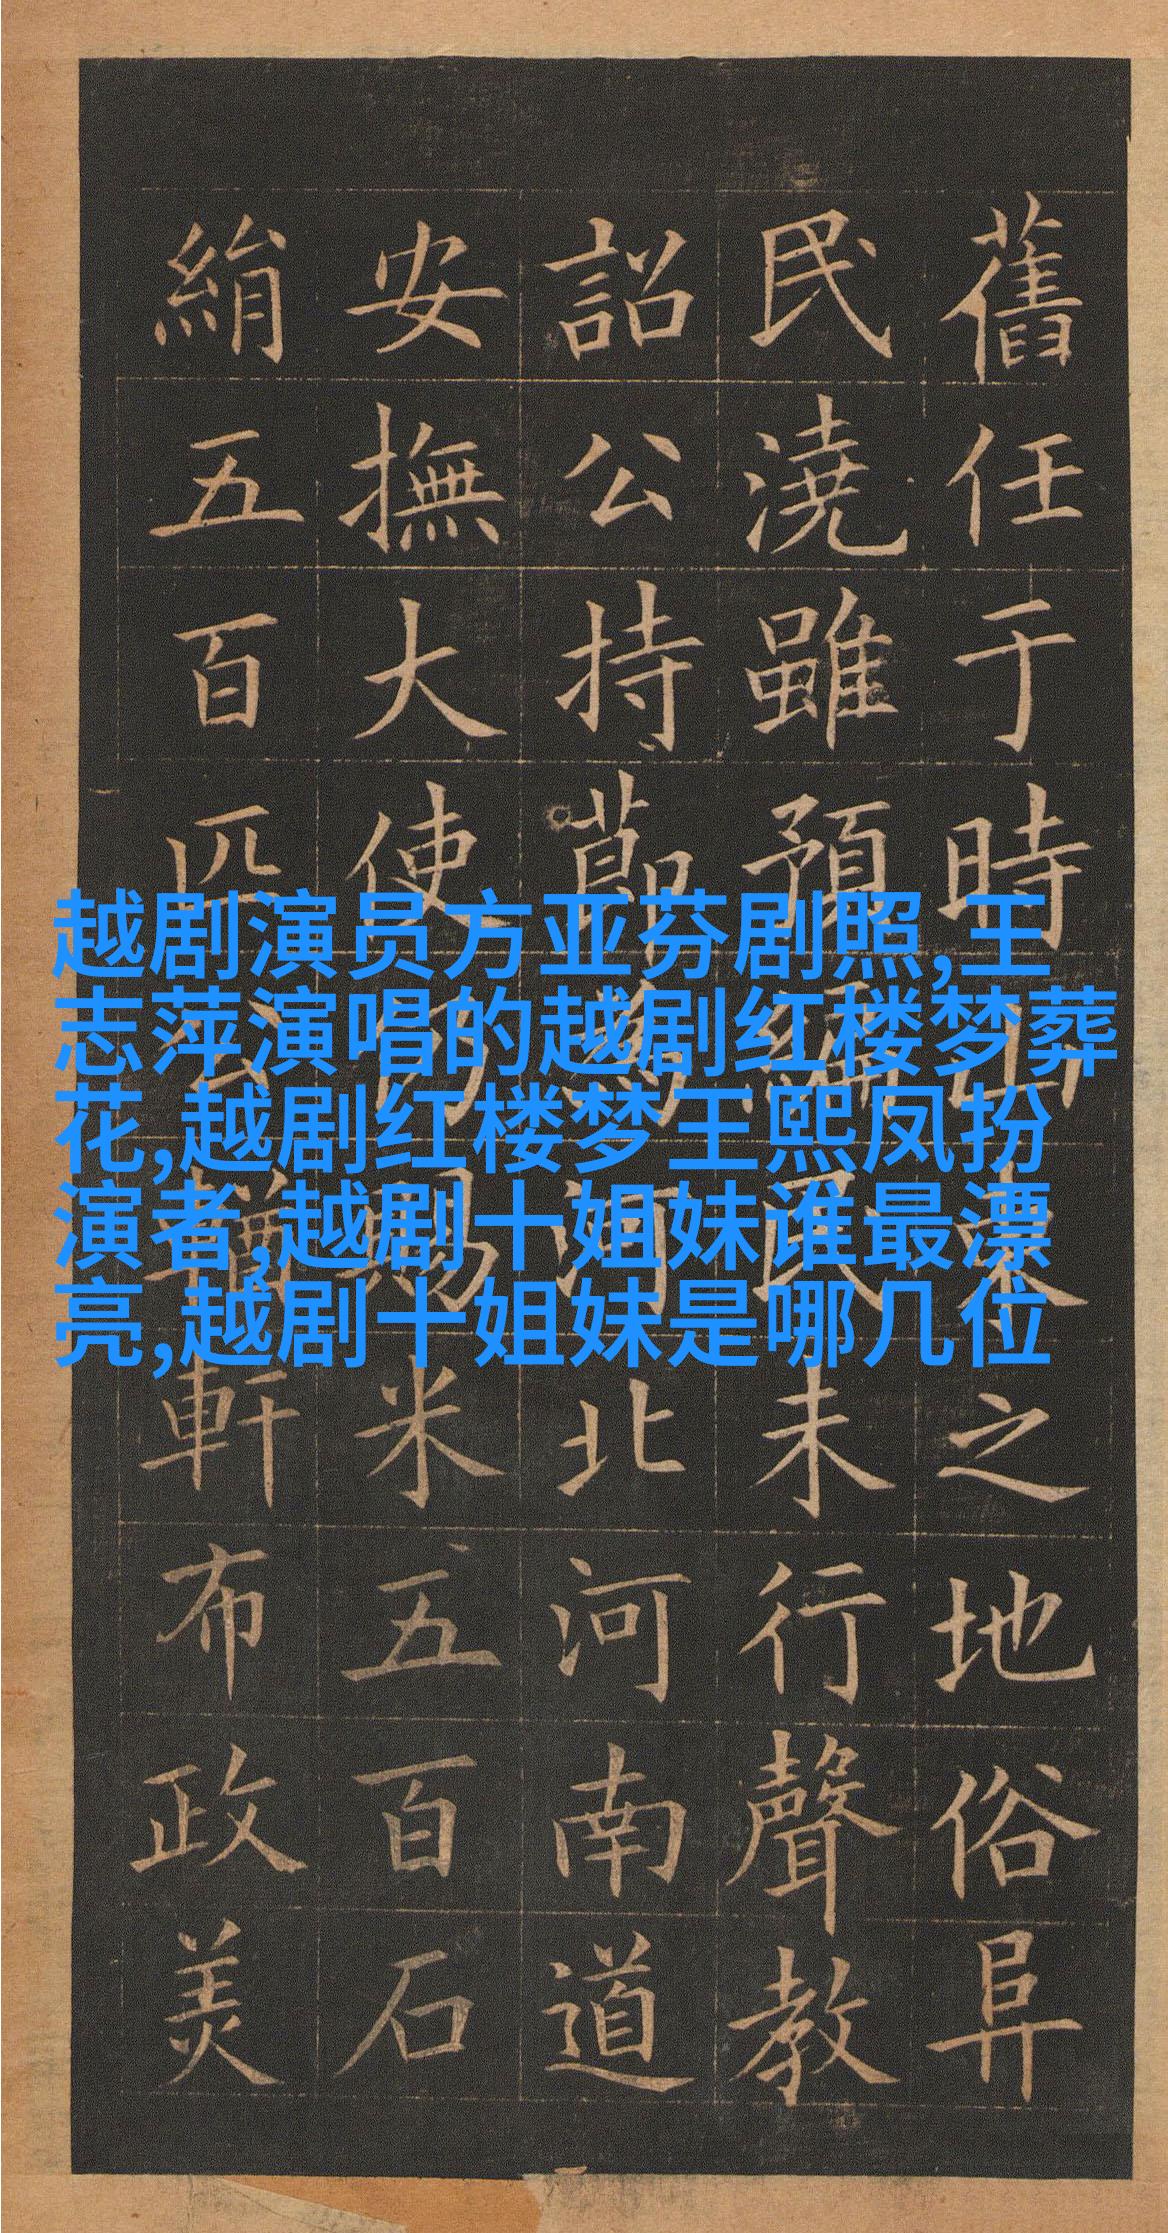 舊任于時山東之地俗阜
民澆雖預編民未行聲教
詔公持節爲河北河南道
安撫大使仍賜米五百石
絹五百匹公輶軒布政美
越剧演员方亚芬剧照,王
志萍演唱的越剧红楼梦葬
花,越剧红楼梦王熙凤扮
演者,越剧十姐妹谁最漂
亮,越剧十姐妹是哪几位